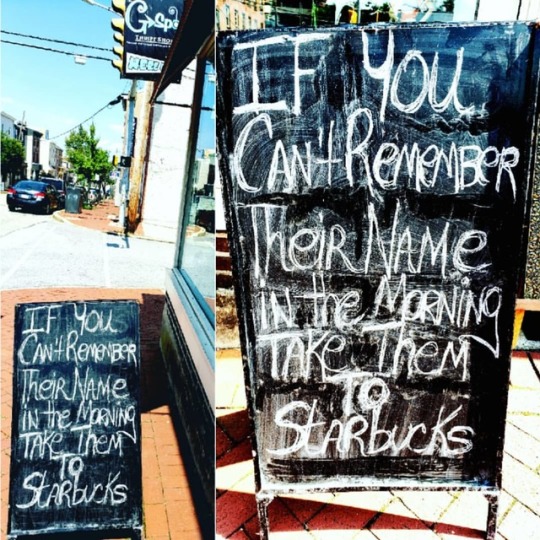 IF YOU
CAN'T REMEMBER
THEIR NAME
IN the MORNING
TAKE Them
TO
STARBUCKS
IF You
CAN't REMEMBER
TheiR NAME
in the MoRNiNg
TAKE Them
TO
STARbucKs